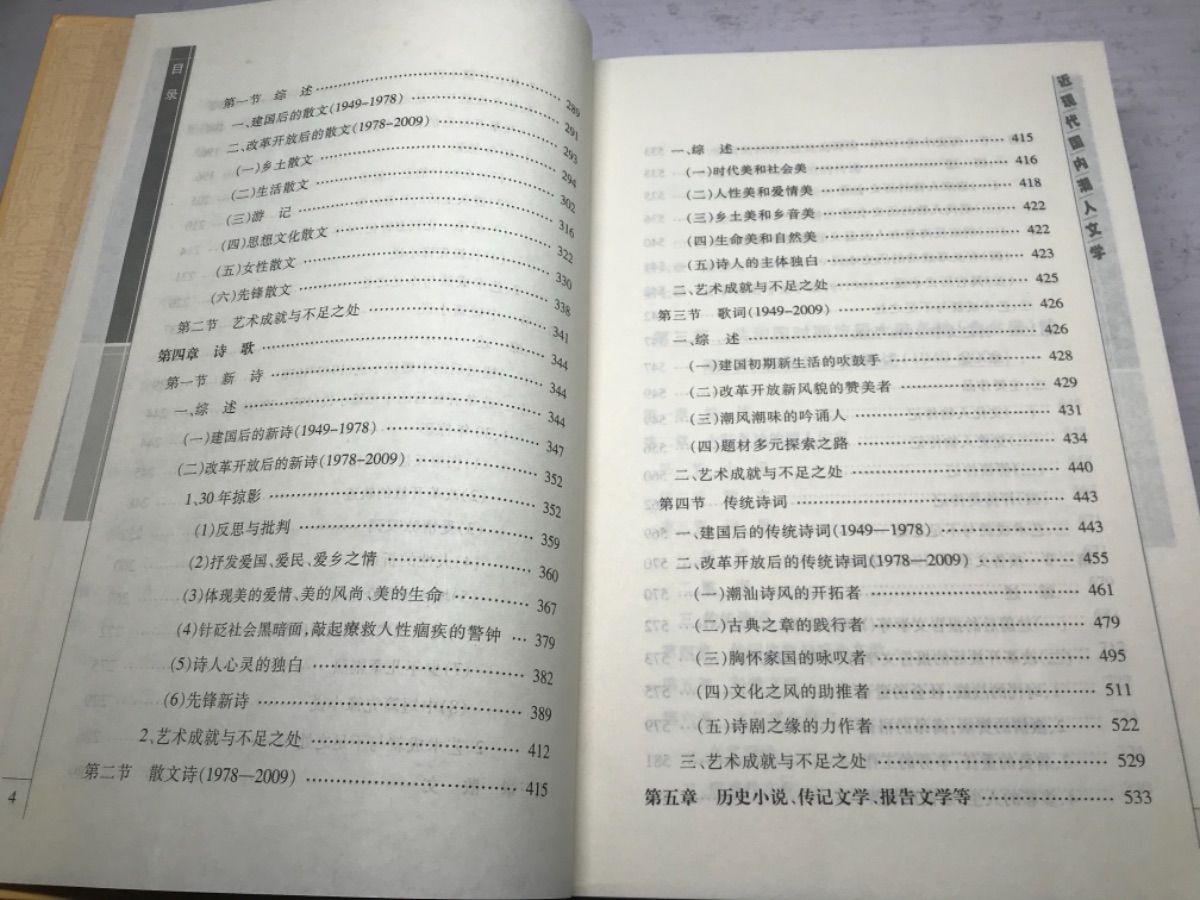 目录
第一节 综 述 ………… 289
一、建国后的散文(1949-1978) ………… 291
二、改革开放后的散文(1978-2009) ………… 293
(一)乡土散文 ………… 294
(二)生活散文 ………… 302
(三)游 记 ………… 316
(四)思想文化散文 ………… 322
(五)女性散文 ………… 330
(六)先锋散文 ………… 338
第二节 艺术成就与不足之处 ………… 341
第四章 诗 歌 ………… 344
第一节 新 诗 ………… 344
一、综 述 ………… 344
(一)建国后的新诗(1949-1978) ………… 347
(二)改革开放后的新诗(1978-2009) ………… 352
1、30年掠影 ………… 352
(1)反思与批判 ………… 359
(2)抒发爱国、爱民、爱乡之情 ………… 360
(3)体现美的爱情、美的风尚、美的生命 ………… 367
(4)针砭社会黑暗面,敲起療救人性痼疾的警钟 … 379
(5)诗人心灵的独白 ………… 382
(6)先锋新诗 ………… 389
2、艺术成就与不足之处 ………… 412
第二节 散文诗(1978—2009) ………… 415
4
近现代国内潮人文学
一、综 述 ………… 415
(一)时代美和社会美 ………… 416
(二)人性美和爱情美 ………… 418
(三)乡土美和乡音美 ………… 422
(四)生命美和自然美 ………… 422
(五)诗人的主体独白 ………… 423
二、艺术成就与不足之处 ………… 425
第三节 歌词(1949-2009) ………… 426
一、综 述 ………… 426
(一)建国初期新生活的吹鼓手 ………… 428
(二)改革开放新风貌的赞美者 ………… 429
(三)潮风潮味的吟诵人 ………… 431
(四)题材多元探索之路 ………… 434
二、艺术成就与不足之处 ………… 440
第四节 传统诗词 ………… 443
一、建国后的传统诗词(1949—1978) ………… 443
二、改革开放后的传统诗词(1978—2009) ………… 455
(一)潮汕诗风的开拓者 ………… 461
(二)古典之章的践行者 ………… 479
(三)胸怀家国的咏叹者 ………… 495
(四)文化之风的助推者 ………… 511
(五)诗剧之缘的力作者 ………… 522
三、艺术成就与不足之处 ………… 529
第五章 历史小说、传记文学、报告文学等 ………… 533